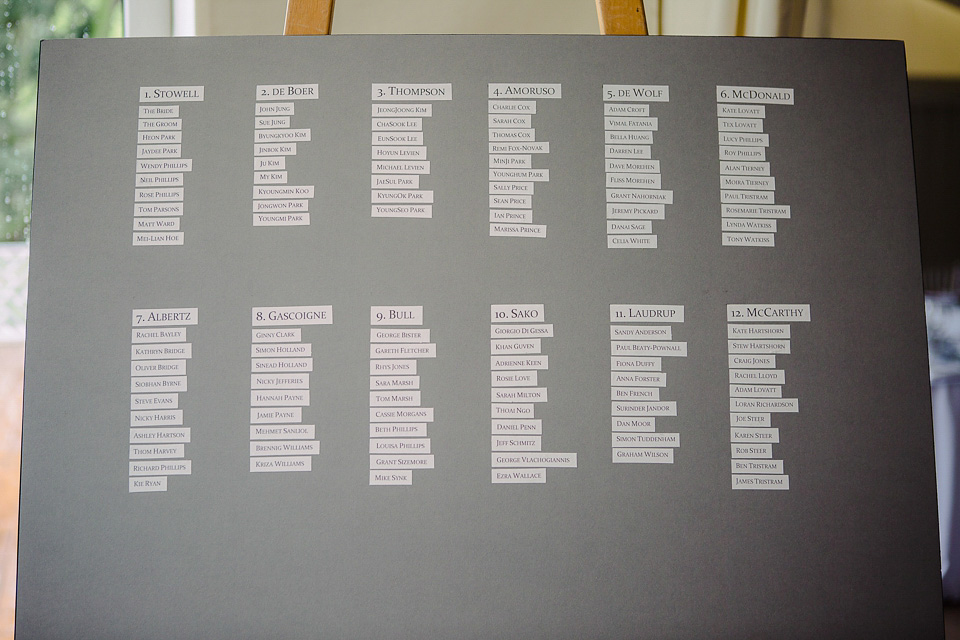 1. Stowell
The Bride
The Groom
Heon Park
Jaydee Park
Wendy Phillips
Neil Phillips
Rose Phillips
Tom Parsons
Matt Ward
Mei-Lian Hoe
2. de Boer
John Jung
Sue Jung
Byungkyoo Kim
Jinbok Kim
Ju Kim
My Kim
Kyoungmin Koo
Jongwon Park
Youngmi Park
3. Thompson
JeongJoong Kim
ChaSook Lee
EunSook Lee
Hoyun Levien
Michael Levien
JaeSul Park
KyungOk Park
YoungSeo Park
4. Amoruso
Charlie Cox
Sarah Cox
Thomas Cox
Remi Fox-Novak
Minji Park
Younghum Park
Sally Price
Sean Price
Ian Prince
Marissa Prince
5. de Wolf
Adam Croft
Vimal Fatania
Bella Huang
Darren Lee
Dave Morehen
Fliss Morehen
Grant Nahorniak
Jeremy Pickard
Danai Sage
Celia White
6. McDonald
Kate Lovatt
Tex Lovatt
Lucy Phillips
Roy Phillips
Alan Tierney
Moira Tierney
Paul Tristram
Rosemarie Tristram
Lynda Watkiss
Tony Watkiss
7. Albertz
Rachel Bayley
Kathryn Bridge
Oliver Bridge
Siobhan Byrne
Steve Evans
Nicky Harris
Ashley Hartson
Thom Harvey
Richard Phillips
Kie Ryan
8. Gascoigne
Ginny Clark
Simon Holland
Sinead Holland
Nicky Jefferies
Hannah Payne
Jamie Payne
Mehmet Sanliol
Brennig Williams
Keiza Williams
9. Bull
George Bister
Gareth Fletcher
Rhys Jones
Sara Marsh
Tom Marsh
Cassie Morgans
Beth Phillips
Louisa Phillips
Grant Sizemore
Mike Synk
10. Sako
Giorgio Di Gessa
Khan Guven
Adrienne Keen
Rosie Love
Sarah Milton
Thoai Ngo
Daniel Penn
Jeff Schmitz
George Vlachogiannis
Ezra Wallace
11. Laudrup
Sandy Anderson
Paul Beaty-Pownall
Fiona Duffy
Anna Forster
Ben French
Surinder Jandor
Dan Moor
Simon Tuddenham
Graham Wilson
12. McCarthy
Kate Hartshorn
Stew Hartshorn
Craig Jones
Rachel Lloyd
Adam Lovatt
Loran Richardson
Joe Steer
Karen Steer
Rob Steer
Ben Tristram
James Tristram